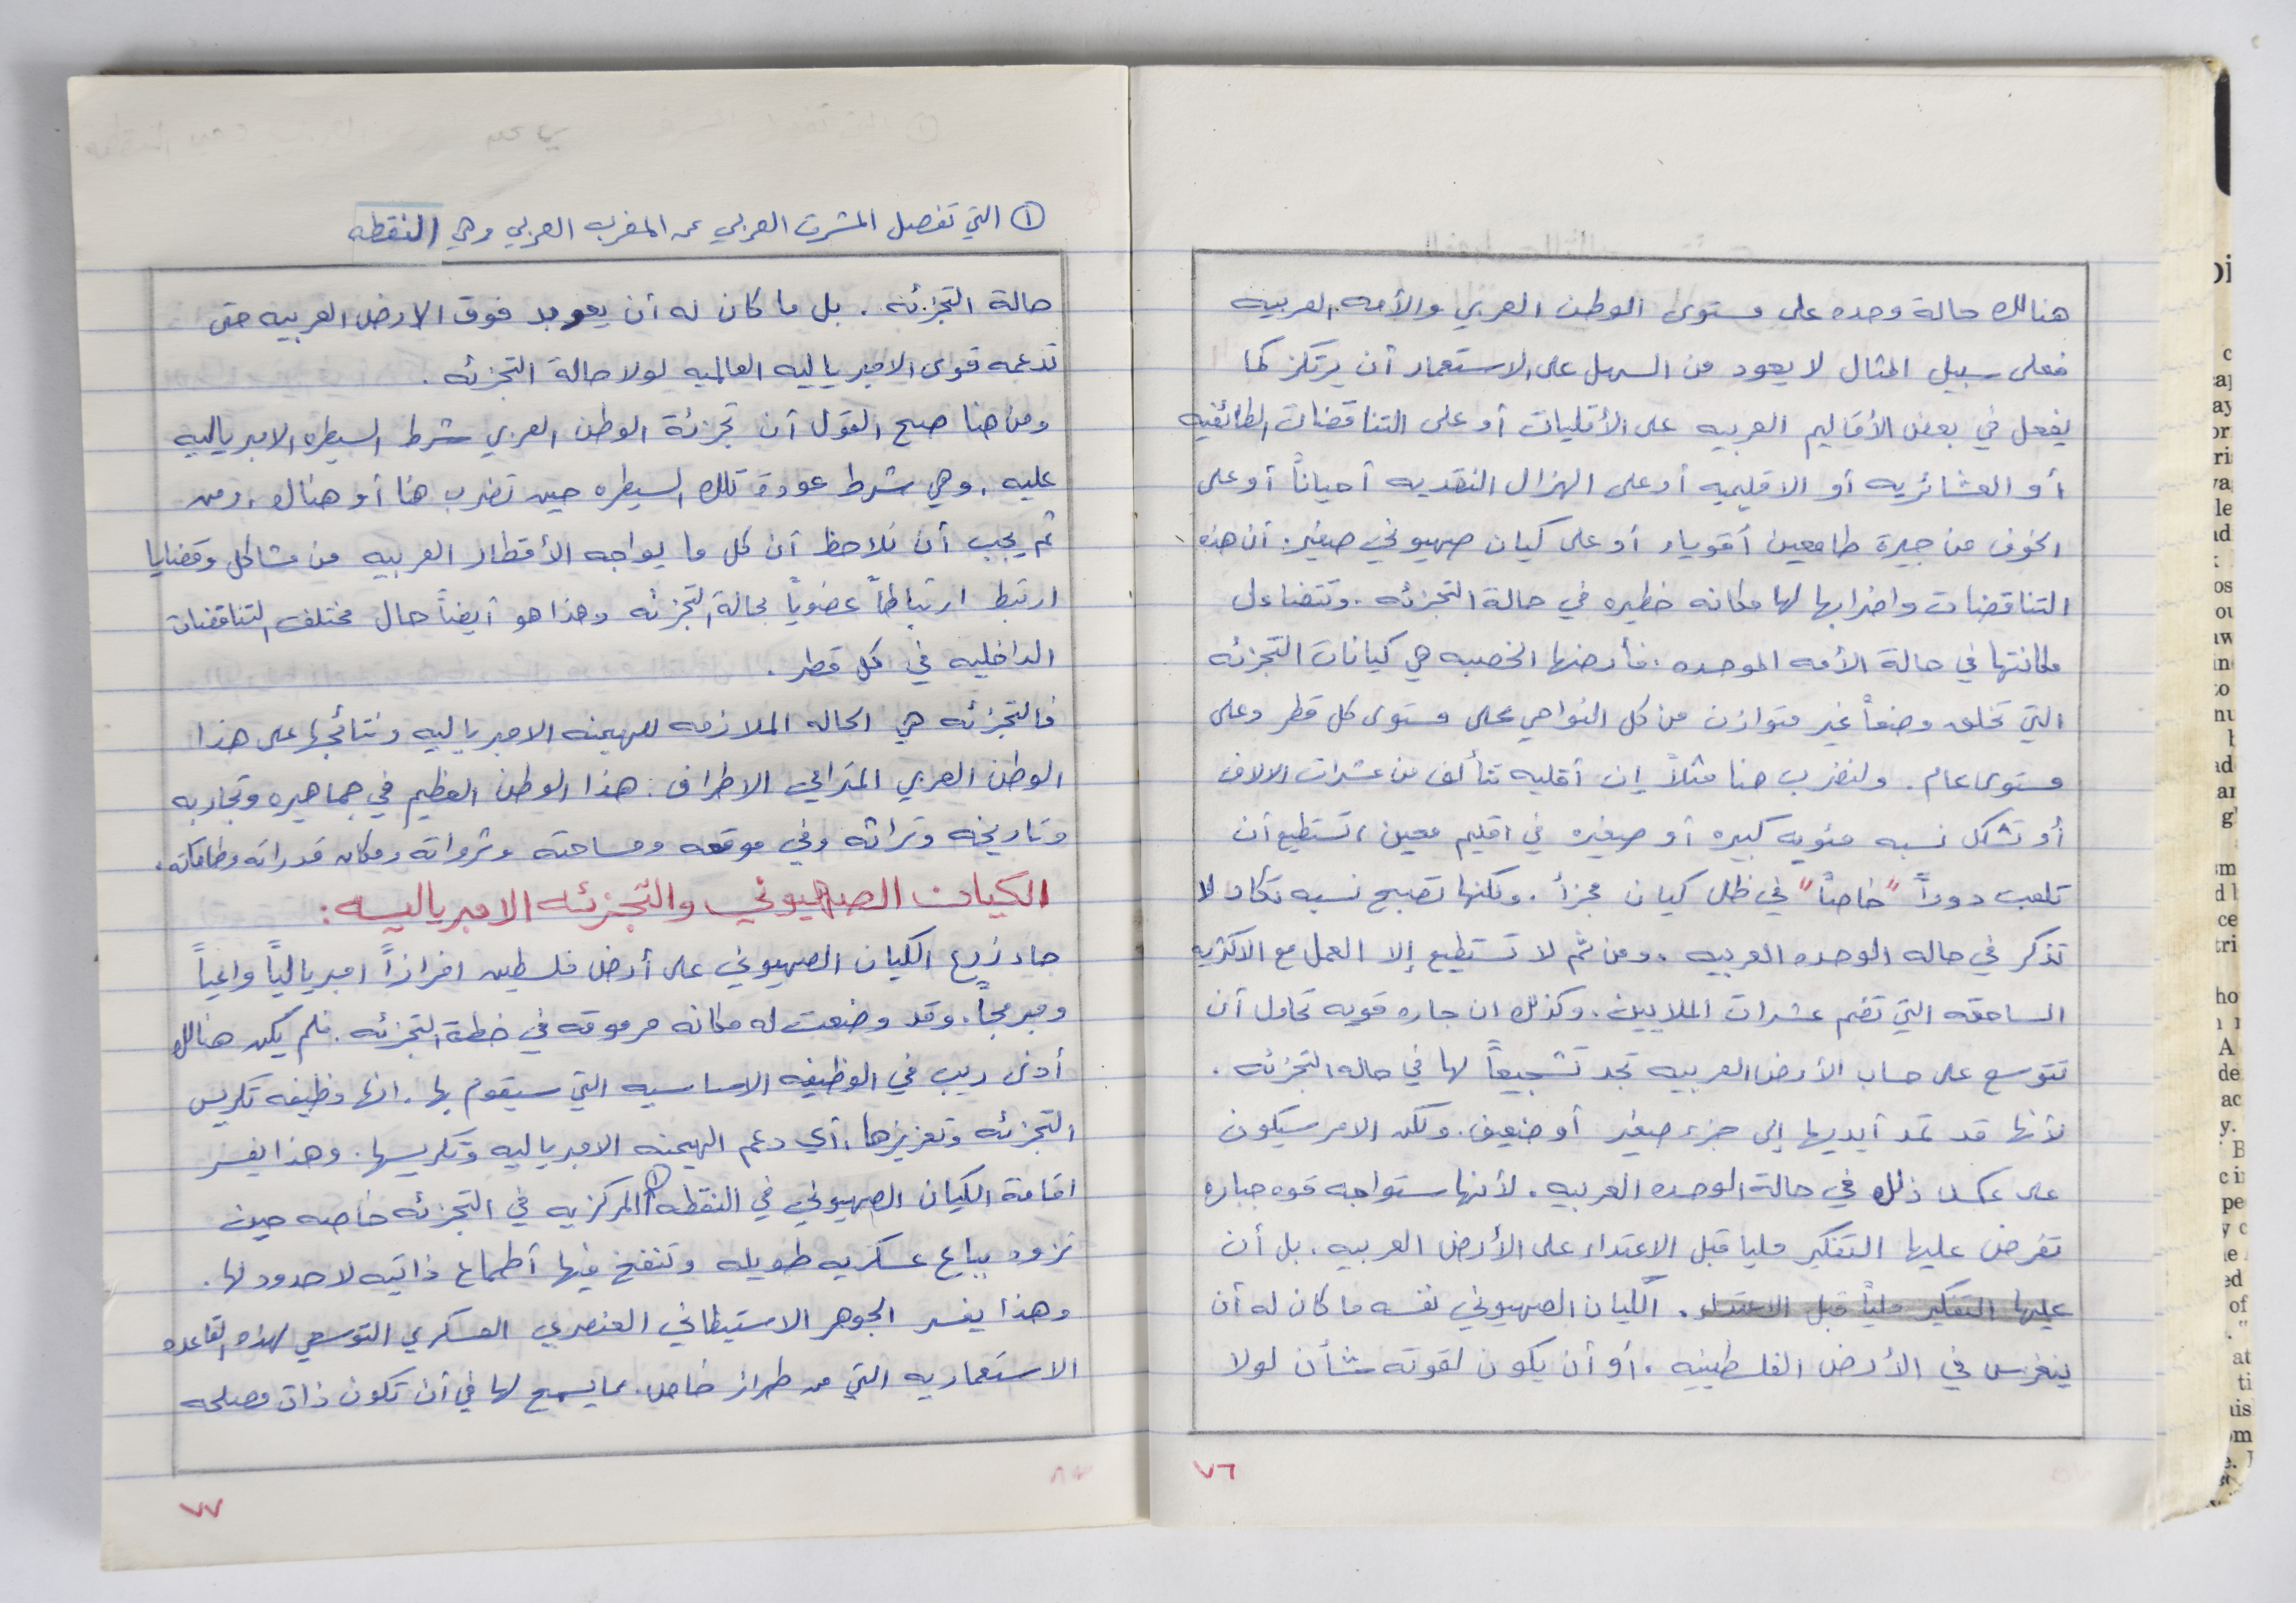 هنالك حالة وحده على مستوى الوطن العربي والأمه العربيه
فعلى سبيل المثال لا يعود من السهل على الاستعمار أن يرتكز كما
يفعل في بعض الأقاليم العربيه على الأقليات أو على التناقضات الطائفيه
أو العشائريه أو الاقليميه أو على الهزال النقديه أحياناً أو على
الخوف من جيرة طامعين أقوياء أو على كيان صهيوني صغير. أن هذه
التناقضات واضرابها لها مكانه خطيره في حالة التجزئه. وتتضاءل
مكانتها في حالة الأمه الموحده. فأرضها الخصبه هي كيانات التجزئه
التي تخلق وضعاً غير متوازن من كل النواحي على مستوى كل قطر وعلى
مستوى عام. ولنضرب هنا مثلاً إن أقليه تتألف من عشرات الالاف
أو تشكل نسبه مئويه كبيره أو صغيره في اقليم معين، تستطيع أن
تلعب دوراً "خاصاً" في ظل كيان مجزأ. ولكنها تصبح نسبه تكاد لا
تذكر في حاله الوحده العربيه. ومن ثم لا تستطيع إلا العمل مع الاكثريه
الساحقه التي تضم عشرات الملايين. وكذلك ان جاره قويه تحاول أن
تتوسع على حساب الأرض العربيه تجد تشجيعاً لها في حاله التجزئه.
لأنها قد تمد أيديها إلى جزء صغير أو ضعيف. ولكن الامر سيكون
على عكس ذلك في حالة الوحده العربيه. لأنها ستواجه قوه جباره
تفرض عليها التفكير مليا قبل الاعتداء على الأرض العربيه. بل أن
عليها التفكير ملياً قبل الاعتداء. الكيان الصهيوني نفسه ما كان له أن
ينغرس في الأرض الفلسطينيه. أو أن يكون لقوته شأن لولا
٧٦
① التي تفصل المشرق العربي عن المغرب العربي وهي النقطه
حالة التجزئه. بل ما كان له أن يوجد فوق الارض العربيه حتى
تدعمه قوى الامبرياليه العالميه لولا حالة التجزئه.
ومن هنا صح القول أن تجزئة الوطن العربي شرط السيطره الامبرياليه
عليه. وهي شرط عودة تلك السيطره حين تضرب هنا أو هناك، ومن
ثم يجب أن نلاحظ أن كل ما يواجه الأقطار العربيه من مشاكل وقضايا
ارتبط ارتباطاً عضوياً بحالة التجزئه وهذا هو أيضاً حال مختلف التناقضات
الداخليه في كل قطر.
فالتجزئه هي الحاله الملازمه للهيمنه الامبرياليه ونتائجها على هذا
الوطن العربي المترامي الاطراف. هذا الوطن العظيم في جماهيره وتجاربه
وتاريخه وتراثه وفي موقعه ومساحته وثرواته ومكان قدراته وطاقاته.
الكيان الصهيوني والتجزئه الامبرياليه:
جاء زرع الكيان الصهيوني على أرض فلسطين افرازاً امبريالياً واعياً
ومبرمجاً. وقد وضعت له مكانه مرموقه في خطة التجزئه. فلم يكن هنالك
أدنى ريب في الوظيفه الاساسيه التي سيقوم بها. انها وظيفه تكريس
التجزئه وتعزيزها، أي دعم الهيمنه الامبرياليه وتكريسها. وهذا يفسر
اقامة الكيان الصهيوني في النقطه ① المركزيه في التجزئه خاصه حين
تزود بباع عسكريه طويله وتنفخ فيها أطماع ذاتيه لا حدود لها.
وهذا يفسر الجوهر الاستيطاني العنصري العسكري التوسعي لهذه القاعده
الاستعماريه التي من طراز خاص. مما يسمح لها في أن تكون ذات مصلحه
٧٧